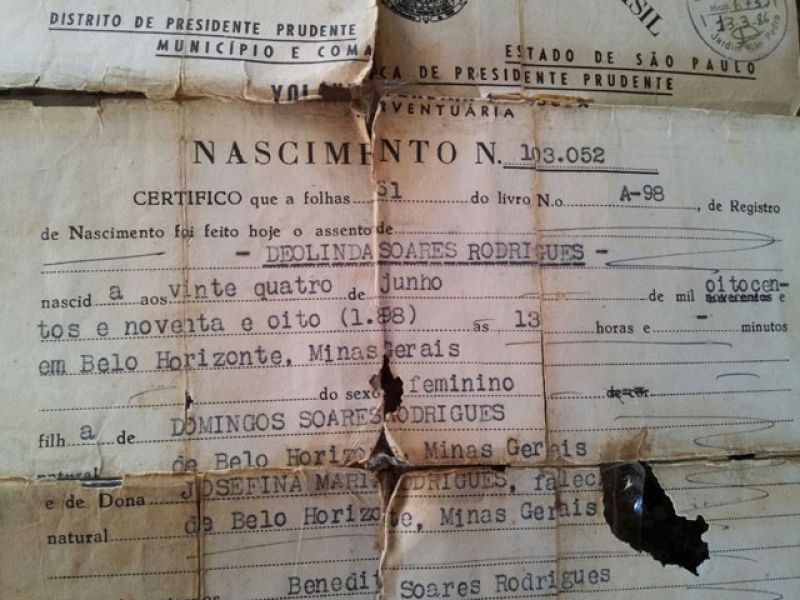 BRASIL
13.3.86
DISTRITO DE PRESIDENTE PRUDENTE
ESTADO DE SÃO PAULO
MUNICÍPIO E COMA CA DE PRESIDENTE PRUDENTE
VENTUÁRIA
NASCIMENTO N. 103.052
CERTIFICO que a folhas 51 do livro N.o A-98, de Registro
de Nascimento foi feito hoje o assento de
- DEOLINDA SOARES RODRIGUES -
nascid a aos vinte quatro de junho de mil oitocen-
novecentos e
tos e noventa e oito (1.898) às 13 horas e - minutos
em Belo Horizonte, Minas Gerais
do sexo feminino de cor
filh a de DOMINGOS SOARES RODRIGUES
natural de Belo Horizonte, Minas Gerais
e de Dona JOSEFINA MARIA RODRIGUES, faleci
natural de Belo Horizonte, Minas Gerais
Benedit Soares Rodrigues